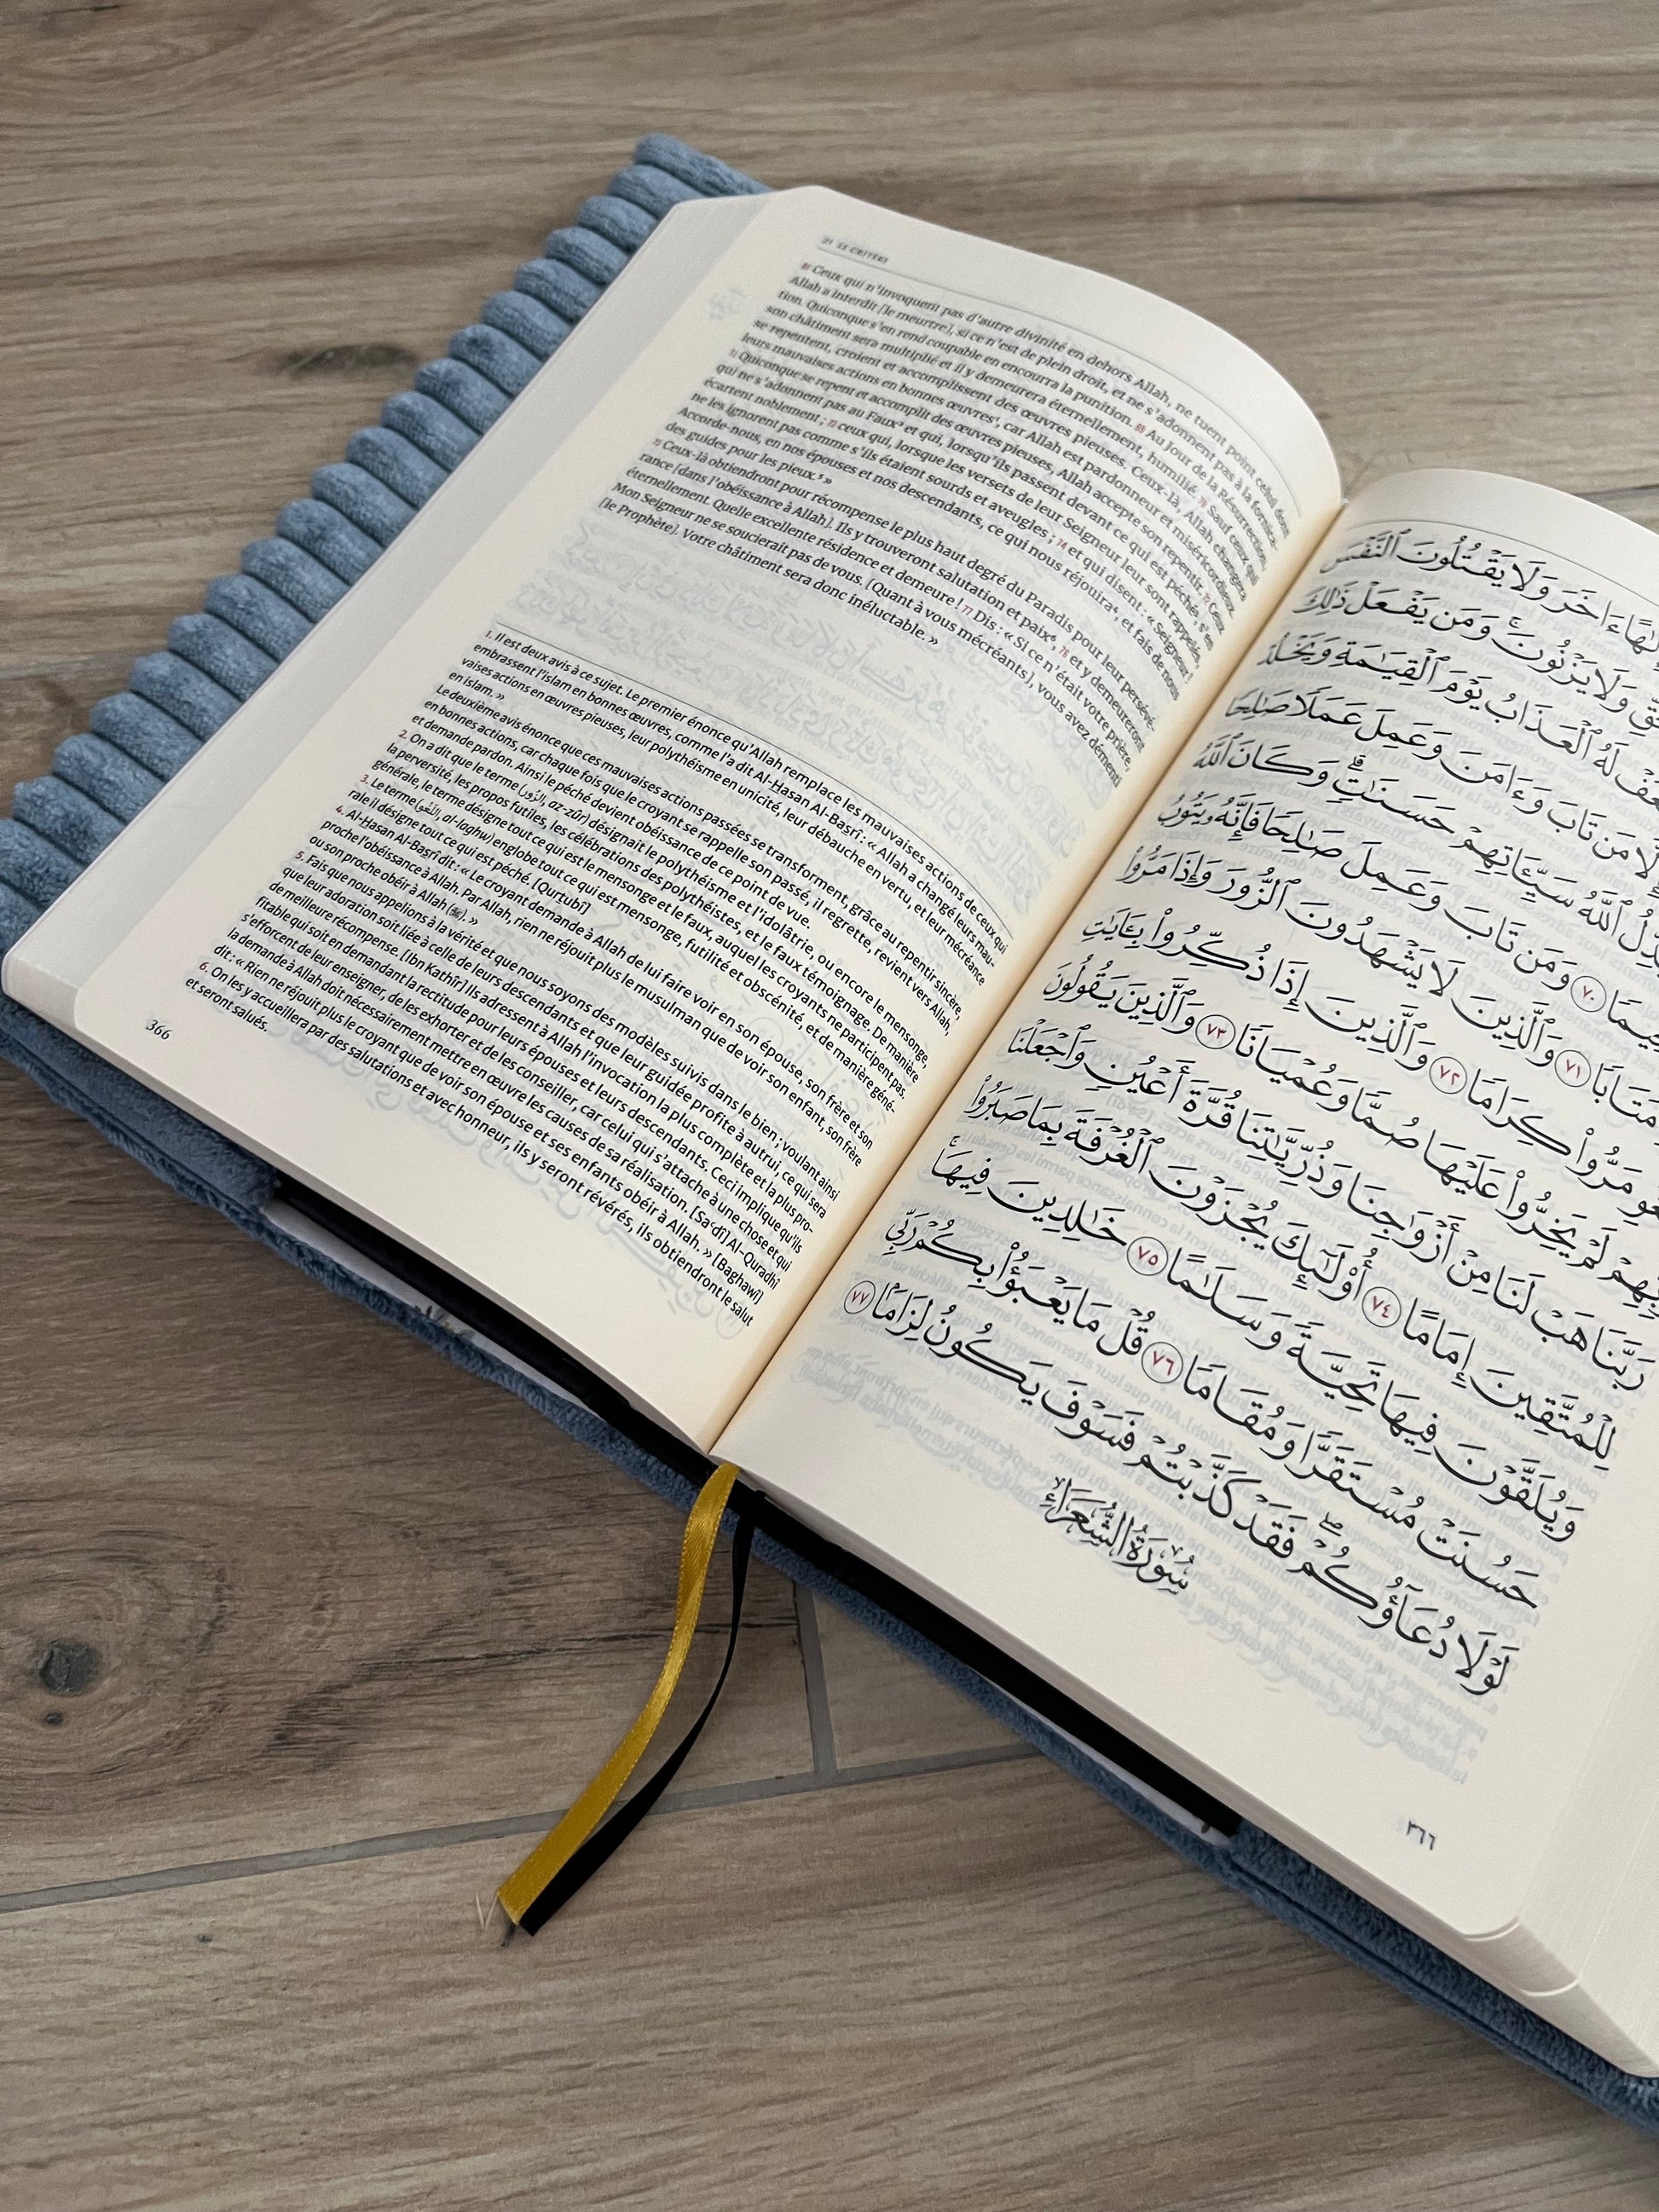 LE CRITÈRE
68 Ceux qui n'invoquent pas d'autre divinité en dehors Allah, ne tuent point celui dont
Allah a interdit [le meurtre], si ce n'est de plein droit, et ne s'adonnent pas à la fornica-
tion. Quiconque s'en rend coupable en encourra la punition. 69 Au Jour de la Résurrection,
son châtiment sera multiplié et il y demeurera éternellement, humilié. 70 Sauf ceux qui
se repentent, croient et accomplissent des œuvres pieuses. Ceux-là, Allah changera
leurs mauvaises actions en bonnes œuvres¹, car Allah est pardonneur et miséricordieux
71 Quiconque se repent et accomplit des œuvres pieuses, Allah accepte son repentir. 72 Ceux
qui ne s'adonnent pas au Faux² et qui, lorsqu'ils passent devant ce qui est péché³, s'en
écartent noblement ; 73 ceux qui, lorsque les versets de leur Seigneur leur sont rappelés,
ne les ignorent pas comme s'ils étaient sourds et aveugles ; 74 et qui disent : « Seigneur !
Accorde-nous, en nos épouses et nos descendants, ce qui nous réjouira⁴, et fais de nous
des guides pour les pieux.⁵ »
75 Ceux-là obtiendront pour récompense le plus haut degré du Paradis pour leur persévé-
rance [dans l'obéissance à Allah]. Ils y trouveront salutation et paix⁶, 76 et y demeureront
éternellement. Quelle excellente résidence et demeure ! 77 Dis : « Si ce n'était votre prière,
Mon Seigneur ne se soucierait pas de vous. [Quant à vous mécréants], vous avez démenti
[le Prophète]. Votre châtiment sera donc inéluctable. »
1. Il est deux avis à ce sujet. Le premier énonce qu'Allah remplace les mauvaises actions de ceux qui
embrassent l'islam en bonnes œuvres, comme l'a dit Al-Ḥasan Al-Baṣrî : « Allah a changé leurs mau-
vaises actions en œuvres pieuses, leur polythéisme en unicité, leur débauche en vertu, et leur mécréance
en islam. »
Le deuxième avis énonce que ces mauvaises actions passées se transforment, grâce au repentir sincère,
en bonnes actions, car chaque fois que le croyant se rappelle son passé, il regrette, revient vers Allah,
et demande pardon. Ainsi le péché devient obéissance de ce point de vue.
2. On a dit que le terme (الزُّور, az-zûr) désignait le polythéisme et l'idolâtrie, ou encore le mensonge,
la perversité, les propos futiles, les célébrations des polythéistes, et le faux témoignage. De manière
générale, le terme désigne tout ce qui est le mensonge et le faux, auquel les croyants ne participent pas.
3. Le terme (اللَّغْو, al-laghw) englobe tout ce qui est mensonge, futilité et obscénité, et de manière géné-
rale il désigne tout ce qui est péché. [Qurṭubî]
4. Al-Ḥasan Al-Baṣrî dit : « Le croyant demande à Allah de lui faire voir en son épouse, son frère et son
proche l'obéissance à Allah. Par Allah, rien ne réjouit plus le musulman que de voir son enfant, son frère
ou son proche obéir à Allah (ﷻ). »
5. Fais que nous appelions à la vérité et que nous soyons des modèles suivis dans le bien ; voulant ainsi
que leur adoration soit liée à celle de leurs descendants et que leur guidée profite à autrui, ce qui sera
de meilleure récompense. [Ibn Kathîr] Ils adressent à Allah l'invocation la plus complète et la plus pro-
fitable qui soit en demandant la rectitude pour leurs épouses et leurs descendants. Ceci implique qu'ils
s'efforcent de leur enseigner, de les exhorter et de les conseiller, car celui qui s'attache à une chose et qui
la demande à Allah doit nécessairement mettre en œuvre les causes de sa réalisation. [Sa'dî] Al-Quradhî
dit : « Rien ne réjouit plus le croyant que de voir son épouse et ses enfants obéir à Allah. » [Baghawî]
6. On les y accueillera par des salutations et avec honneur, ils y seront révérés, ils obtiendront le salut
et seront salués.
366
إِلَٰهًا ءَاخَرَ وَلَا يَقْتُلُونَ ٱلنَّفْسَ
وَلَا يَزْنُونَ ۚ وَمَن يَفْعَلْ ذَٰلِكَ
لَهُ ٱلْعَذَابُ يَوْمَ ٱلْقِيَٰمَةِ وَيَخْلُدْ
إِلَّا مَن تَابَ وَءَامَنَ وَعَمِلَ عَمَلًا صَٰلِحًا
ٱللَّهُ سَيِّـَٔاتِهِمْ حَسَنَٰتٍ ۗ وَكَانَ ٱللَّهُ
٧٠ وَمَن تَابَ وَعَمِلَ صَٰلِحًا فَإِنَّهُۥ يَتُوبُ
مَتَابًا ٧١ وَٱلَّذِينَ لَا يَشْهَدُونَ ٱلزُّورَ وَإِذَا مَرُّوا۟
مَرُّوا۟ كِرَامًا ٧٢ وَٱلَّذِينَ إِذَا ذُكِّرُوا۟ بِـَٔايَٰتِ
لَمْ يَخِرُّوا۟ عَلَيْهَا صُمًّا وَعُمْيَانًا ٧٣ وَٱلَّذِينَ يَقُولُونَ
رَبَّنَا هَبْ لَنَا مِنْ أَزْوَٰجِنَا وَذُرِّيَّٰتِنَا قُرَّةَ أَعْيُنٍ وَٱجْعَلْنَا
لِلْمُتَّقِينَ إِمَامًا ٧٤ أُو۟لَٰٓئِكَ يُجْزَوْنَ ٱلْغُرْفَةَ بِمَا صَبَرُوا۟
وَيُلَقَّوْنَ فِيهَا تَحِيَّةً وَسَلَٰمًا ٧٥ خَٰلِدِينَ فِيهَا ۚ
حَسُنَتْ مُسْتَقَرًّا وَمُقَامًا ٧٦ قُلْ مَا يَعْبَؤُا۟ بِكُمْ رَبِّى
لَوْلَا دُعَآؤُكُمْ ۖ فَقَدْ كَذَّبْتُمْ فَسَوْفَ يَكُونُ لِزَامًۢا ٧٧
سُورَةُ الشُّعَرَاءِ
٣٦٦